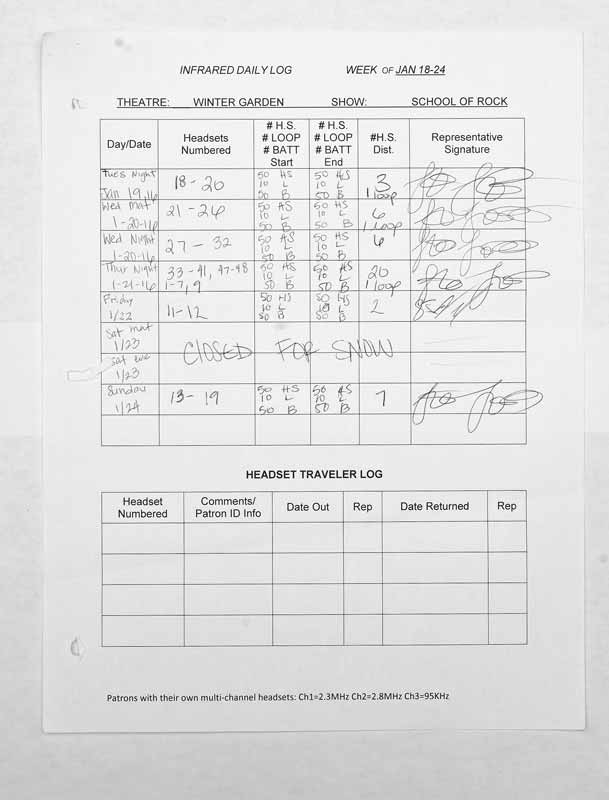 INFRARED DAILY LOG WEEK OF JAN 18-24
THEATRE: WINTER GARDEN SHOW: SCHOOL OF ROCK
Day/Date Headsets Numbered # H.S. # LOOP # BATT Start # H.S. # LOOP # BATT End #H.S. Dist. Representative Signature
Tues Night Jan 19, 16 18 - 20 50 HS 10 L 50 B 50 HS 10 L 50 B 3 1 loop
Wed mat 1-20-16 21 - 26 50 HS 10 L 50 B 50 HS 10 L 50 B 6 1 loop
Wed Night 1-20-16 27 - 32 50 HS 10 L 50 B 50 HS 10 L 50 B 6
Thur Night 1-21-16 33-41, 47-48 1-7, 9 50 HS 10 L 50 B 50 HS 10 L 50 B 20 1 loop
Friday 1/22 11-12 50 HS 10 L 50 B 50 HS 10 L 50 B 2
Sat mat 1/23
CLOSED FOR SNOW
Sat eve 1/23
Sunday 1/24 13 - 19 50 HS 10 L 50 B 50 HS 10 L 50 B 7
HEADSET TRAVELER LOG
Headset Numbered Comments/ Patron ID Info Date Out Rep Date Returned Rep
Patrons with their own multi-channel headsets: Ch1=2.3MHz Ch2=2.8MHz Ch3=95KHz